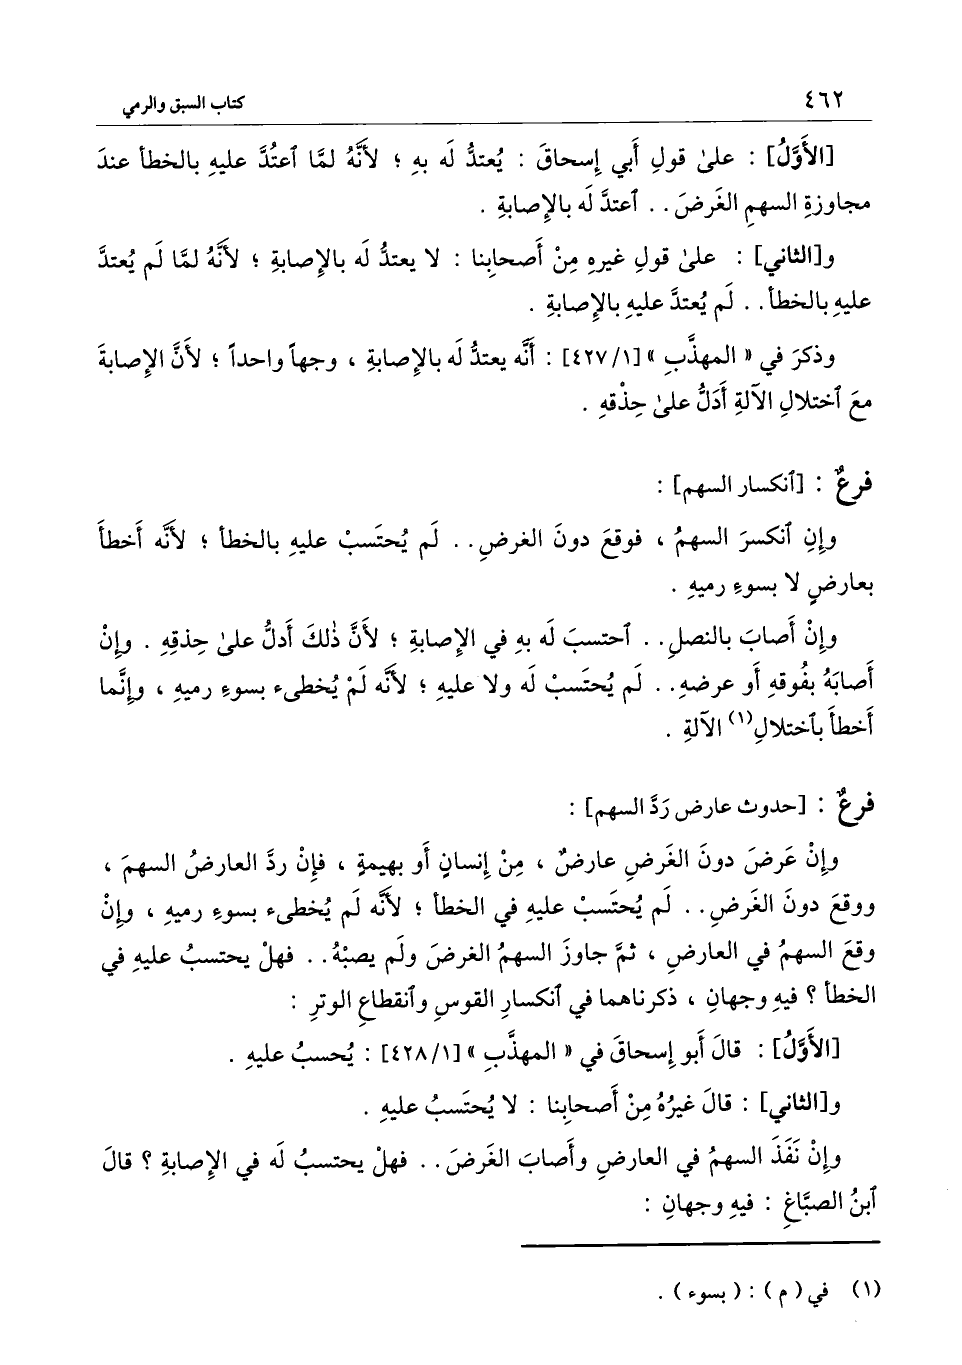 ٤٦٢
كتاب السبق والرمي
[الأَوَّلُ] : علىٰ قولِ أَبي إِسحاقَ : يُعتدُّ لَه بهِ ؛ لأنَّهُ لمَّا ٱعتُدَّ عليهِ بالخطأ عندَ
مجاوزةِ السهمِ الغَرضَ . . ٱعتدَّ لَه بالإِصابةِ .
و[الثاني] : علىٰ قولِ غيرِهِ مِنْ أَصحابِنا : لا يعتدُّ لَه بالإِصابةِ ؛ لأنَّهُ لمَّا لَم يُعتدَّ
عليهِ بالخطأ . . لَم يُعتدَّ عليهِ بالإِصابةِ .
وذكرَ في « المهذَّبِ » [٤٢٧/١] : أنَّه يعتدُّ لَه بالإِصابةِ ، وجهاً واحداً ؛ لأنَّ الإِصابةَ
معَ ٱختلالِ الآلةِ أَدَلُّ علىٰ حِذْقِهِ .
فرعٌ : [ٱنكسار السهم] :
وإِنِ ٱنكسرَ السهمُ ، فوقعَ دونَ الغرضِ . . لَم يُحتَسبْ عليهِ بالخطأ ؛ لأنَّه أَخطأَ
بعارضٍ لا بسوءِ رميهِ .
وإِنْ أَصابَ بالنصلِ . . ٱحتسبَ لَه بهِ في الإِصابةِ ؛ لأنَّ ذٰلكَ أَدلُّ علىٰ حِذقِهِ . وإِنْ
أَصابَهُ بفُوقهِ أَو عرضهِ . . لَم يُحتَسبْ لَه ولا عليهِ ؛ لأنَّه لَمْ يُخطىء بسوءِ رميهِ ، وإِنَّما
أَخطأَ بٱختلالِ(١) الآلةِ .
فرعٌ : [حدوث عارض رَدَّ السهم] :
وإِنْ عَرضَ دونَ الغَرضِ عارضٌ ، مِنْ إِنسانٍ أَو بهيمةٍ ، فإِنْ ردَّ العارضُ السهمَ ،
ووقعَ دونَ الغَرضِ . . لَم يُحتَسبْ عليهِ في الخطأ ؛ لأنَّه لَم يُخطىء بسوءِ رميهِ ، وإِنْ
وقعَ السهمُ في العارضِ ، ثمَّ جاوزَ السهمُ الغرضَ ولَم يصبْهُ . . فهلْ يحتسبُ عليهِ في
الخطأ ؟ فيهِ وجهانِ ، ذكرناهما في ٱنكسارِ القوسِ وٱنقطاعِ الوترِ :
[الأَوَّلُ] : قالَ أَبو إِسحاقَ في « المهذَّبِ » [٤٢٨/١] : يُحسبُ عليهِ .
و[الثاني] : قالَ غيرُهُ مِنْ أَصحابِنا : لا يُحتَسبُ عليهِ .
وإِنْ نَفَذَ السهمُ في العارضِ وأَصابَ الغَرضَ . . فهلْ يحتسبُ لَه في الإِصابةِ ؟ قالَ
ٱبنُ الصبَّاغِ : فيهِ وجهانِ :
(١) في ( م ) : ( بسوء ) .